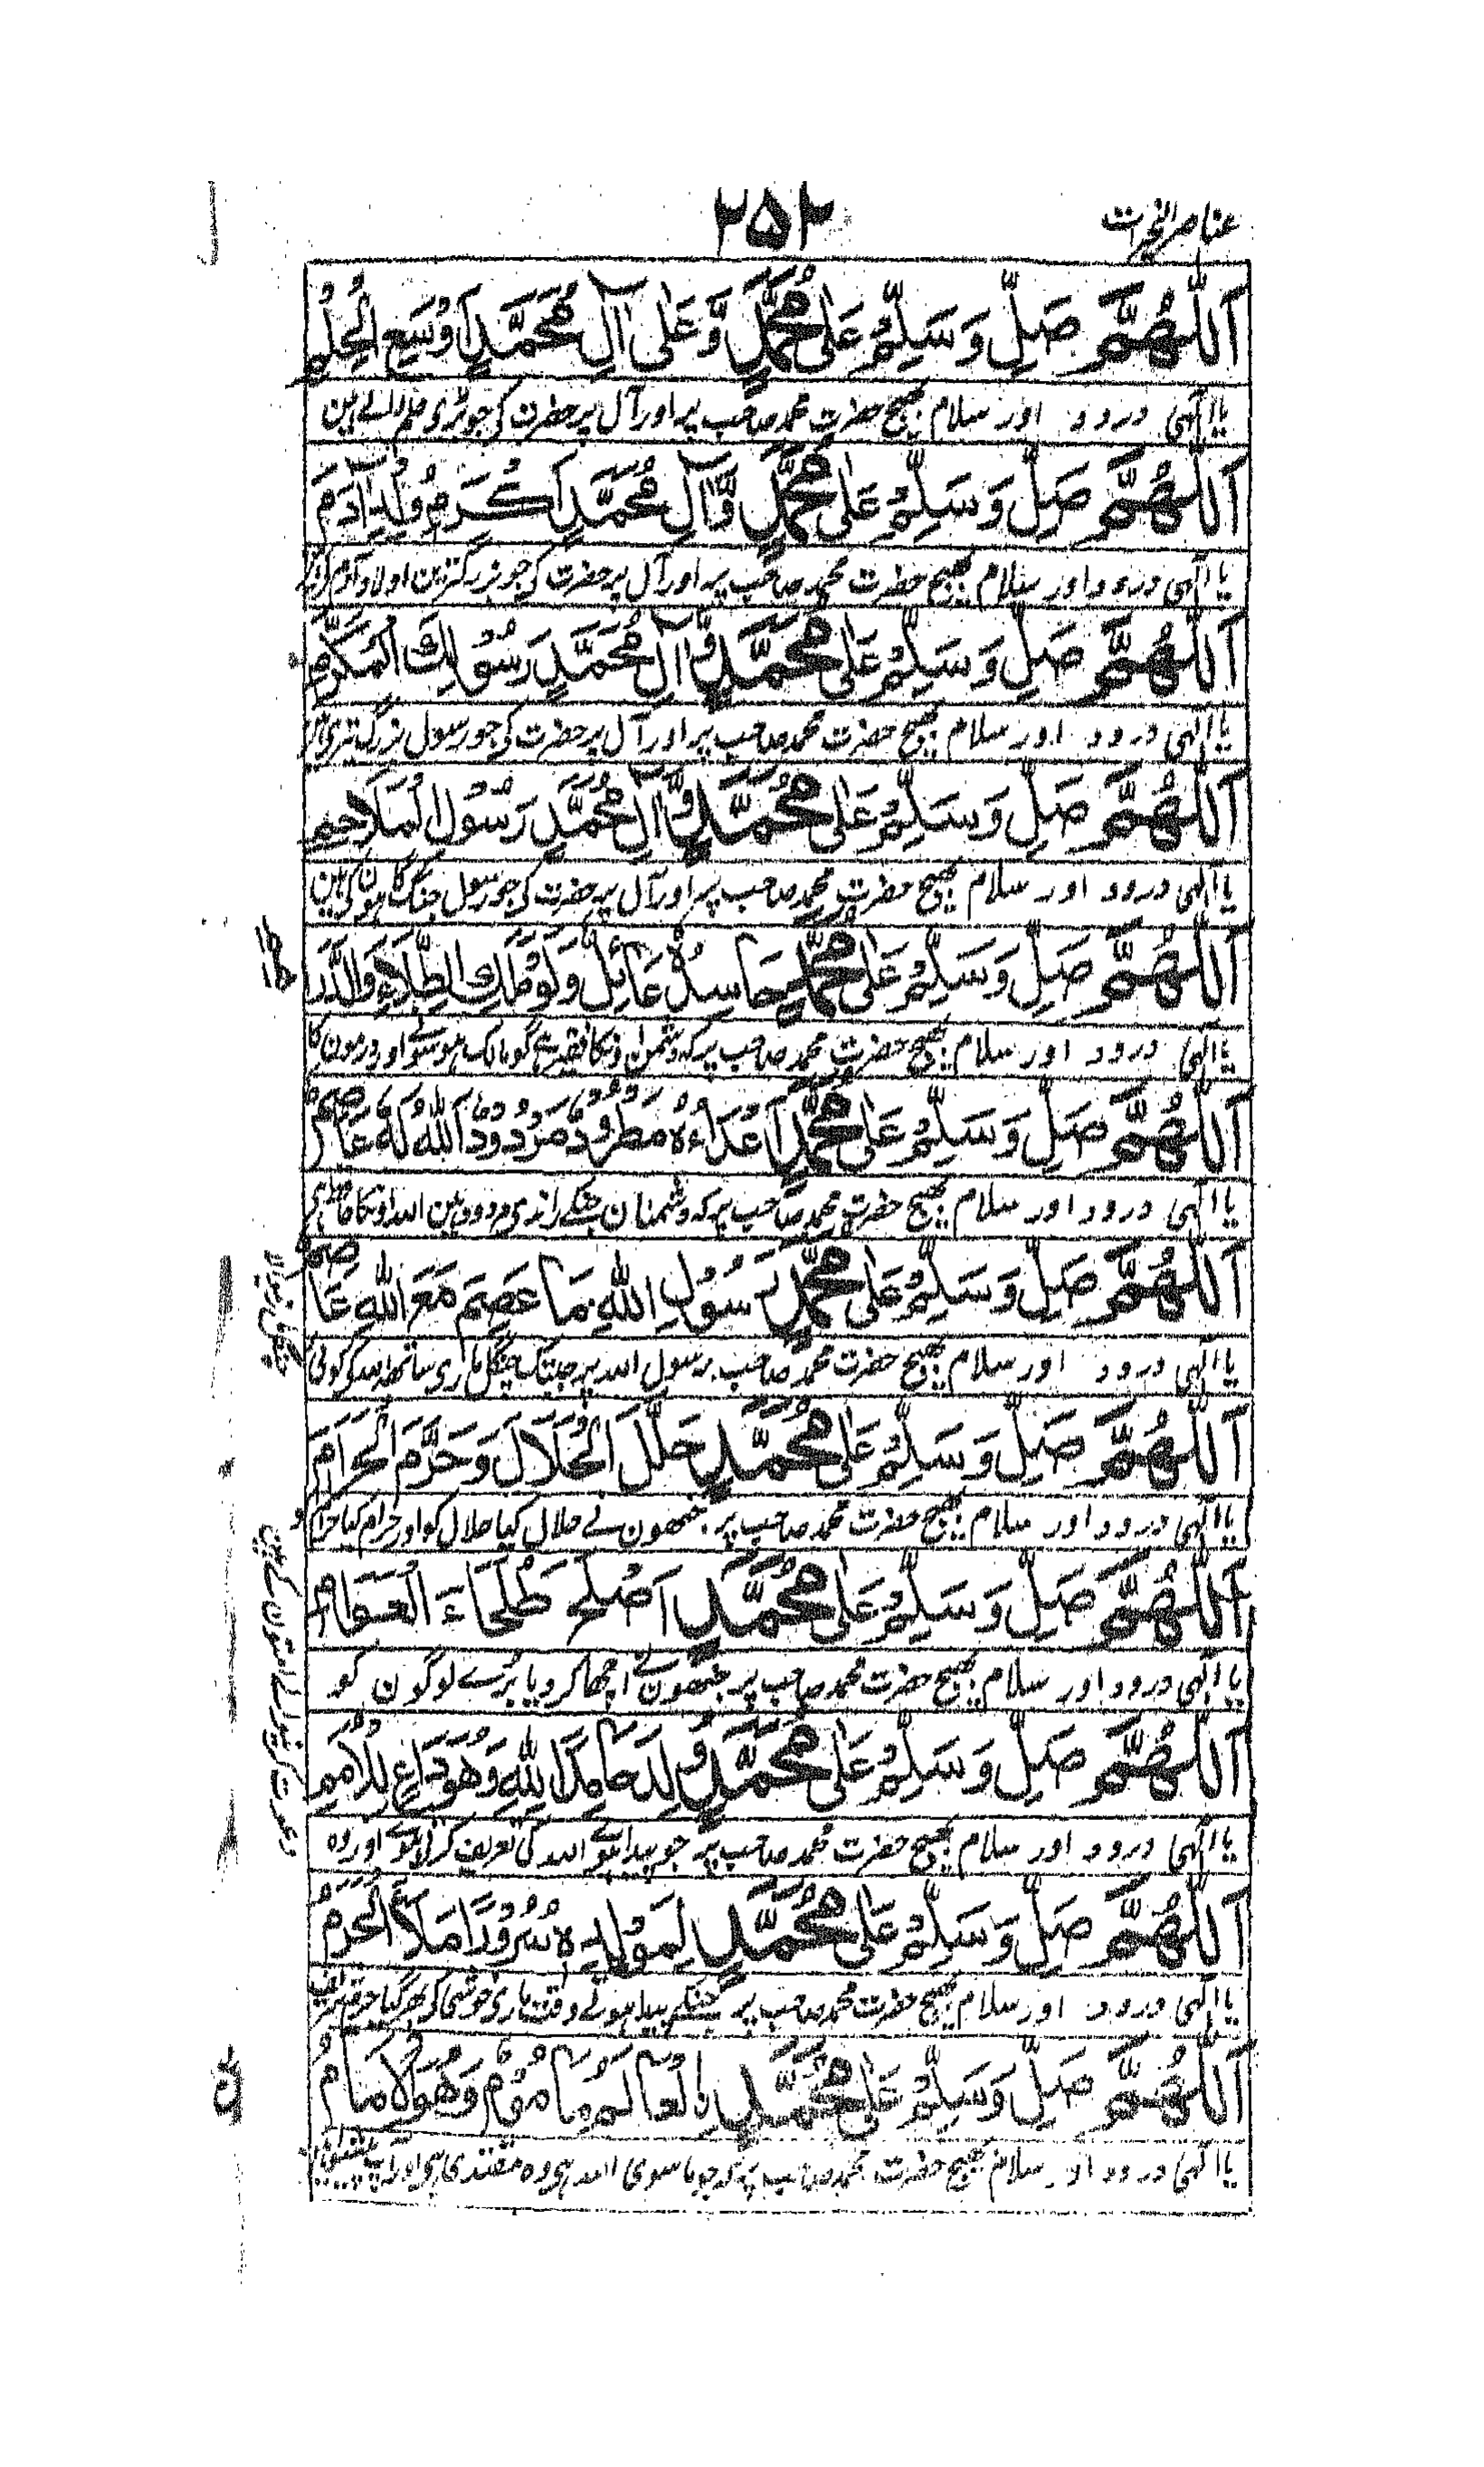 عناصر الخیرات
۲۵۲
اَللّٰهُمَّ صَلِّ وَسَلِّمْ عَلٰى مُحَمَّدٍ وَّعَلٰى آلِ مُحَمَّدٍ اَوْسَعِ الْحِلْمِ
یا الٰہی درود اور سلام بھیج حضرت محمد صاحب پر اور آل پر حضرت کی جو بڑی حلم والے ہین
اَللّٰهُمَّ صَلِّ وَسَلِّمْ عَلٰى مُحَمَّدٍ وَّآلِ مُحَمَّدٍ اَكْرَمِ وُلْدِ آدَمَ
یا الٰہی درود اور سلام بھیج حضرت محمد صاحب پر اور آل پر حضرت کی جو بزرگترین اولاد آدم
اَللّٰهُمَّ صَلِّ وَسَلِّمْ عَلٰى مُحَمَّدٍ وَّآلِ مُحَمَّدٍ رَسُوْلِكَ الْمُكَرَّمِ
یا الٰہی درود اور سلام بھیج حضرت محمد صاحب پر اور آل پر حضرت کی جو رسول بزرگ تیری
اَللّٰهُمَّ صَلِّ وَسَلِّمْ عَلٰى مُحَمَّدٍ وَّآلِ مُحَمَّدٍ رَسُوْلِ الْمَلَاحِمِ
یا الٰہی درود اور سلام بھیج حضرت محمد صاحب پر اور آل پر حضرت کی جو رسول جنگ گاہونکی ہین
اَللّٰهُمَّ صَلِّ وَسَلِّمْ عَلٰى مُحَمَّدٍ حَاسِدُهٗ عَائِلٌ وَلَوْ مَلَكَ الطِّلَاءَ وَالدَّرَا
یا الٰہی درود اور سلام بھیج حضرت محمد صاحب پر کہ دشمن اونکا فقیر ہے گو مالک ہو سونے اور درمون کا
اَللّٰهُمَّ صَلِّ وَسَلِّمْ عَلٰى مُحَمَّدٍ اَعْدَاءُهٗ مَطْرُوْدٌ مَرْدُوْدٌ اَللّٰهُ لَهٗ عَاصِمٌ
یا الٰہی درود اور سلام بھیج حضرت محمد صاحب پر کہ دشمنان جنکے راندی مردود ہین اللہ اونکا حافظ ہی
اَللّٰهُمَّ صَلِّ وَسَلِّمْ عَلٰى مُحَمَّدٍ رَسُوْلِ اللّٰهِ مَا عَصَمَ مَعَ اللّٰهِ عَاصِمٌ
یا الٰہی درود اور سلام بھیج حضرت محمد صاحب رسول اللہ پر جبتک چنگل ماری ساتھ اللہ کی کوئی
اَللّٰهُمَّ صَلِّ وَسَلِّمْ عَلٰى مُحَمَّدٍ حَلَّلَ الْحَلَالَ وَحَرَّمَ الْحَرَامَ
یا الٰہی درود اور سلام بھیج حضرت محمد صاحب پر جنھون نے حلال کیا حلال کو اور حرام کیا حرام کو
اَللّٰهُمَّ صَلِّ وَسَلِّمْ عَلٰى مُحَمَّدٍ اَصْلَحَ طُلَحَاءَ الْعَوَامِ
یا الٰہی درود اور سلام بھیج حضرت محمد صاحب پر جنھون نے اچھا کر دیا برے لوگون کو
اَللّٰهُمَّ صَلِّ وَسَلِّمْ عَلٰى مُحَمَّدٍ وُلِدَ حَامِدًا لِلّٰهِ وَهُوَ دَاعٍ لِلْاُمَمِ
یا الٰہی درود اور سلام بھیج حضرت محمد صاحب پر جو پیدا ہوے اللہ کی تعریف کرتے ہوے اور وہ
اَللّٰهُمَّ صَلِّ وَسَلِّمْ عَلٰى مُحَمَّدٍ لِمَوْلِدِهٖ سُرُوْرًا مَلَأَ الْحَرَمُ
یا الٰہی درود اور سلام بھیج حضرت محمد صاحب پر جنکے پیدا ہونے وقت ماری خوشی کے بھر گیا حرم شریف
اَللّٰهُمَّ صَلِّ وَسَلِّمْ عَلٰى مُحَمَّدٍ اِلْعَالَمُ مَامُوْمٌ وَهُوَ الْاِمَامُ
یا الٰہی درود اور سلام بھیج حضرت محمد صاحب پر کہ جو ما سوی اللہ ہی وہ مقتدی ہی اور آپ پیشوا